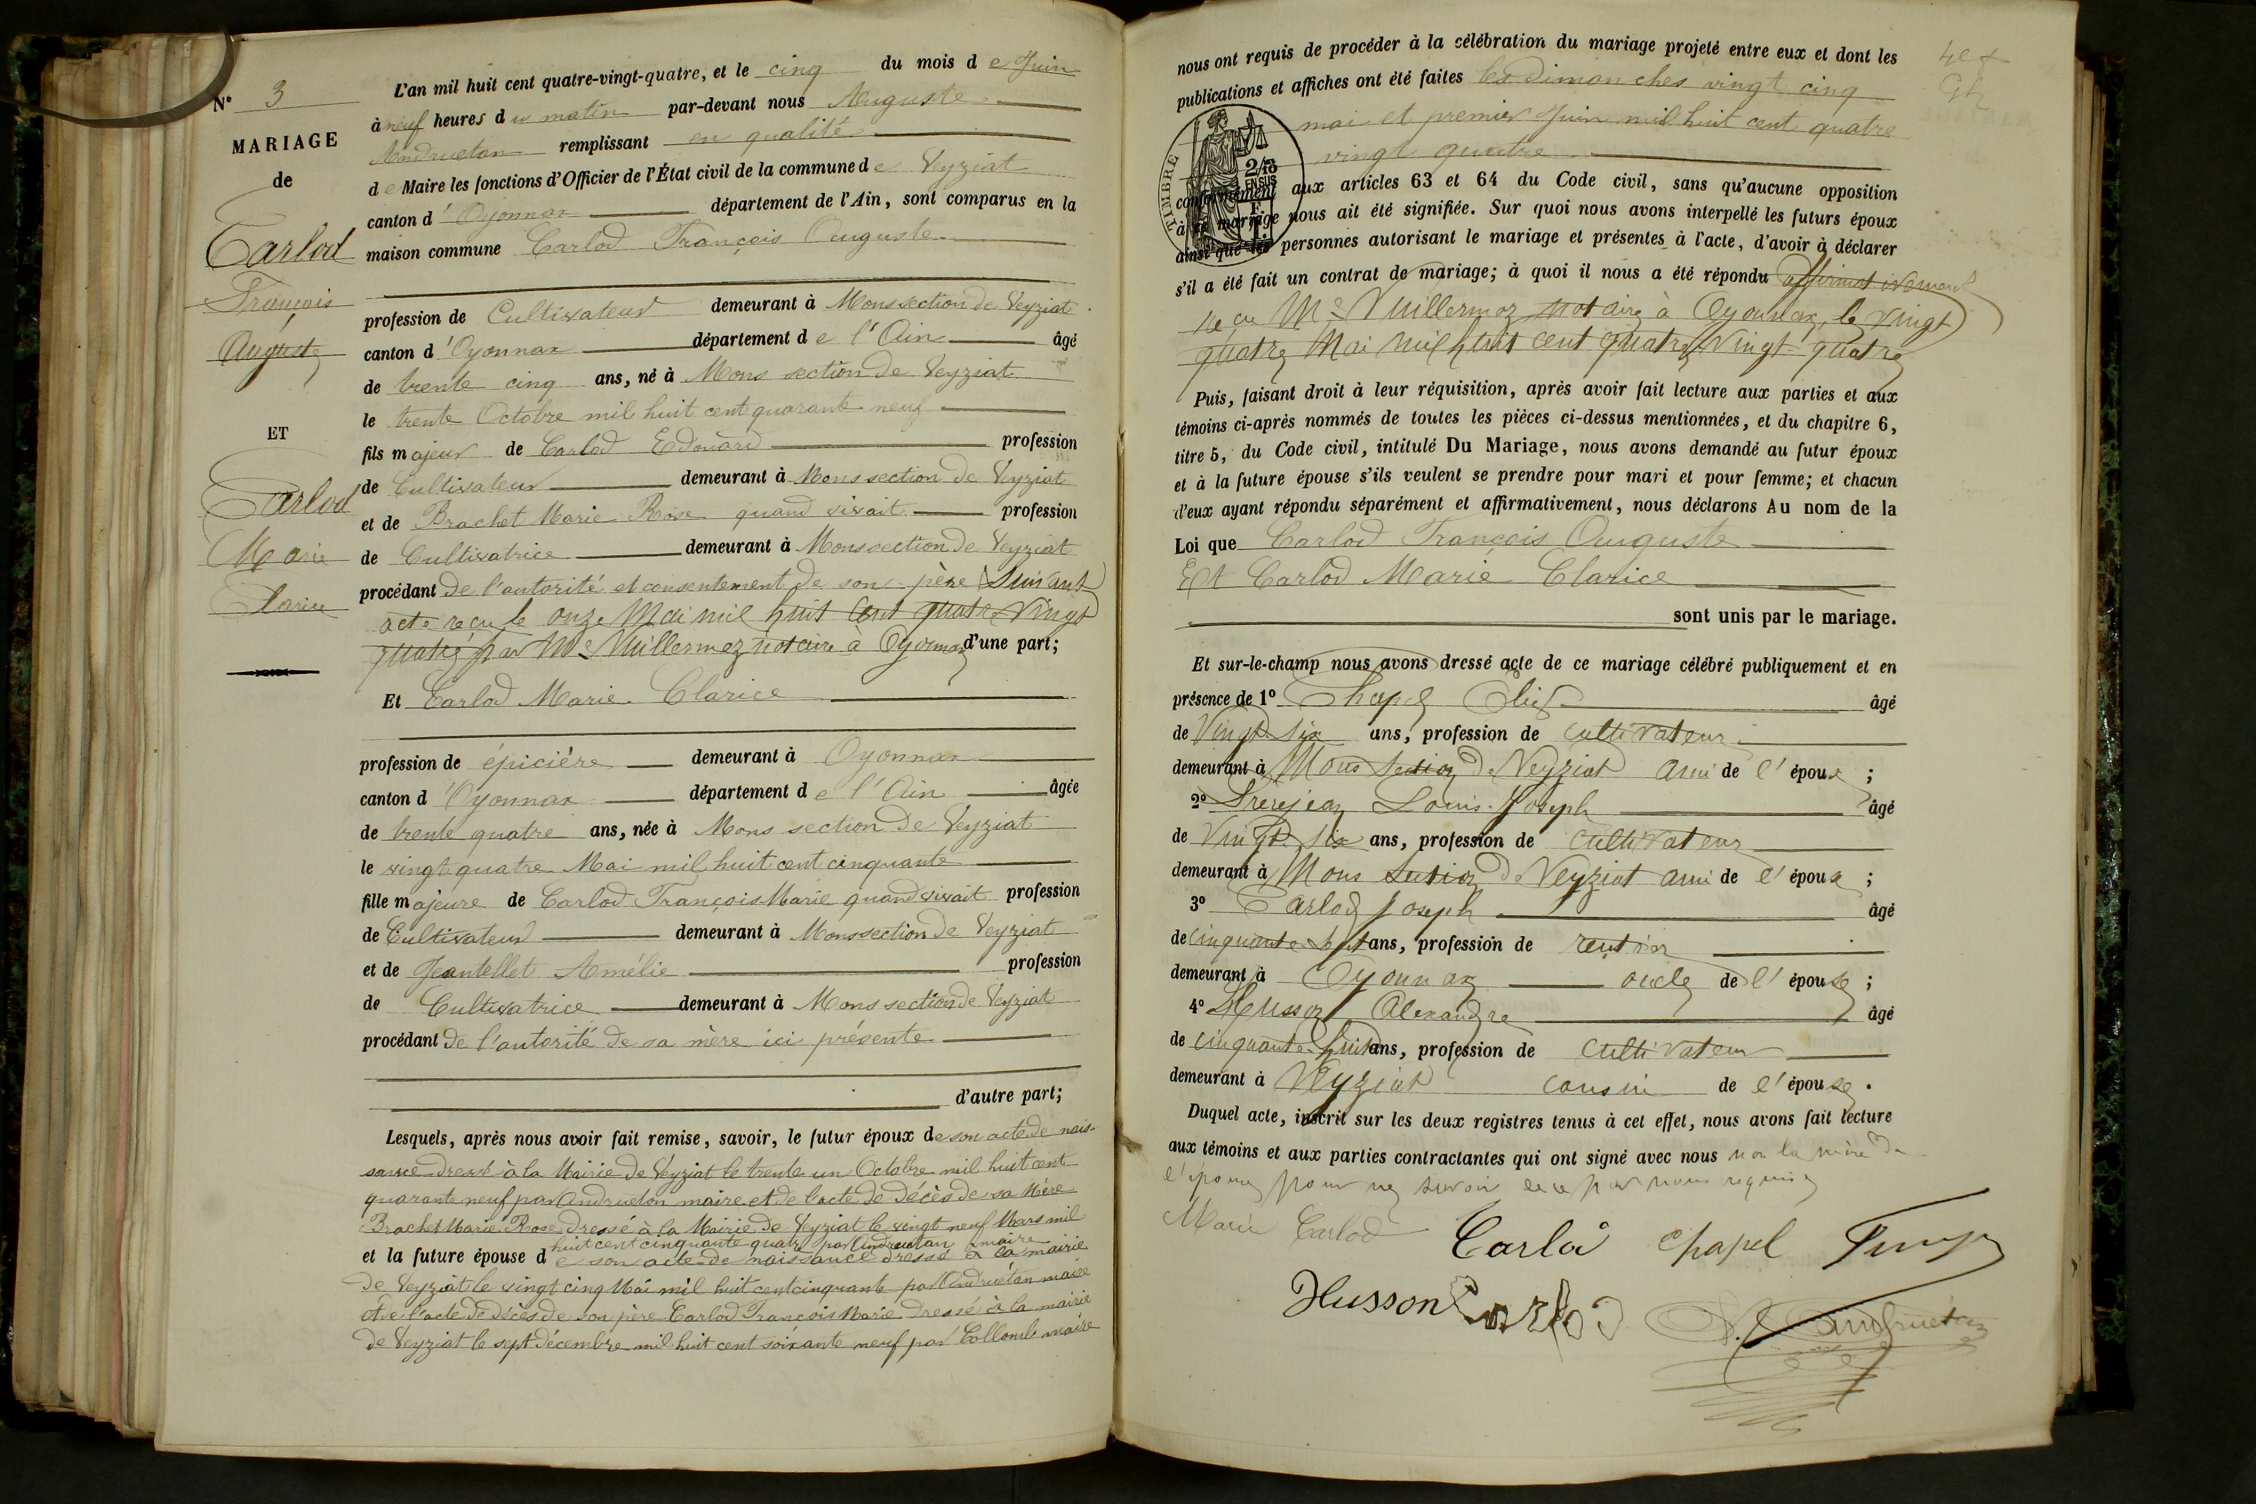 N° 3
MARIAGE
de
Carlod
François
Auguste
ET
Carlod
Marie
Clarice
L'an mil huit cent quatre-vingt-quatre, et le cinq du mois de Juin
à neuf heures du matin par-devant nous Auguste
Andruétan remplissant en qualité
de Maire les fonctions d'Officier de l'État civil de la commune de Veyziat
canton d'Oyonnax département de l'Ain, sont comparus en la
maison commune Carlod François Auguste
profession de Cultivateur demeurant à Mons section de Veyziat
canton d'Oyonnax département de l'Ain âgé
de trente cinq ans, né à Mons section de Veyziat
le trente Octobre mil huit cent quarante neuf
fils majeur de Carlod Edouard profession
de Cultivateur demeurant à Mons section de Veyziat
et de Brachet Marie Rose quand vivait profession
de Cultivatrice demeurant à Mons section de Veyziat
procédant de l'autorité et consentement de son père suivant
acte reçu le onze Mai mil huit cent quatre vingt
quatre par Me Vuillermoz notaire à Oyonnax d'une part;
Et Carlod Marie Clarice
profession de épicière demeurant à Oyonnax
canton d'Oyonnax département de l'Ain âgée
de trente quatre ans, née à Mons section de Veyziat
le vingt quatre Mai mil huit cent cinquante
fille majeure de Carlod François Marie quand vivait profession
de Cultivateur demeurant à Mons section de Veyziat
et de Jeantellet Amélie profession
de Cultivatrice demeurant à Mons section de Veyziat
procédant de l'autorité de sa mère ici présente
d'autre part;
Lesquels, après nous avoir fait remise, savoir, le futur époux de son acte de nais-
sance dressé à la Mairie de Veyziat le trente un Octobre mil huit cent
quarante neuf par Andruétan maire et de l'acte de décès de sa Mère
Brachet Marie Rose dressé à la Mairie de Veyziat le vingt neuf Mars mil
huit cent cinquante quatre par Andruétan maire
et la future épouse de son acte de naissance dressé à la mairie
de Veyziat le vingt cinq Mai mil huit cent cinquante par Andruétan maire
et de l'acte de décès de son père Carlod François Marie dressé à la mairie
de Veyziat le sept décembre mil huit cent soixante neuf par Collomb maire
nous ont requis de procéder à la célébration du mariage projeté entre eux et dont les
publications et affiches ont été faites les dimanches vingt cinq
mai et premier Juin mil huit cent quatre
vingt quatre
TIMBRE
2/10
EN SUS
conformément aux articles 63 et 64 du Code civil, sans qu'aucune opposition
à ce mariage nous ait été signifiée. Sur quoi nous avons interpellé les futurs époux
ainsi que les personnes autorisant le mariage et présentes à l'acte, d'avoir à déclarer
s'il a été fait un contrat de mariage; à quoi il nous a été répondu affirmativement
reçu Me Vuillermoz notaire à Oyonnax, le vingt
quatre Mai mil huit cent quatre vingt quatre
Puis, faisant droit à leur réquisition, après avoir fait lecture aux parties et aux
témoins ci-après nommés de toutes les pièces ci-dessus mentionnées, et du chapitre 6,
titre 5, du Code civil, intitulé Du Mariage, nous avons demandé au futur époux
et à la future épouse s'ils veulent se prendre pour mari et pour femme; et chacun
d'eux ayant répondu séparément et affirmativement, nous déclarons Au nom de la
Loi que Carlod François Auguste
Et Carlod Marie Clarice
sont unis par le mariage.
Et sur-le-champ nous avons dressé acte de ce mariage célébré publiquement et en
présence de 1° Chapel âgé
de Vingt six ans, profession de cultivateur
demeurant à Mons section de Veyziat ami de l'époux ;
2° Frèrejean Louis Joseph âgé
de Vingt six ans, profession de cultivateur
demeurant à Mons section de Veyziat ami de l'époux ;
3° Carlod Joseph âgé
de cinquante sept ans, profession de rentier
demeurant à Oyonnax oncle de l'épouse ;
4° Husson Alexandre âgé
de cinquante huit ans, profession de cultivateur
demeurant à Veyziat cousin de l'épouse .
Duquel acte, inscrit sur les deux registres tenus à cet effet, nous avons fait lecture
aux témoins et aux parties contractantes qui ont signé avec nous non la mère de
l'épouse pour ne savoir de ce par nous requise
Marie Carlod Carlod chapel
Husson Carlod Andruétan